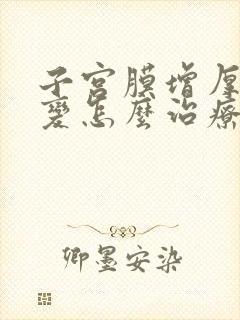 子宫膜增厚
变怎麼治療
卿墨安染